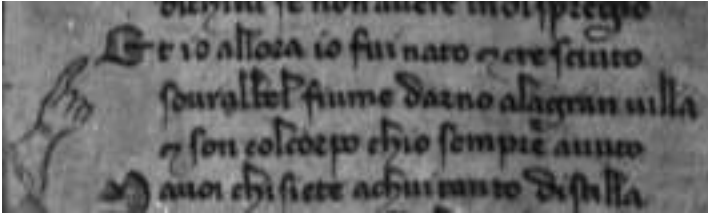 dichini se non auere in dispregio
Et io allora io fui nato ⁊ cresciuto
sourallbel fiume darno alagran uilla
⁊ son colcorpo chio sempre auuto
Mauoi chisiete achui tanto distilla